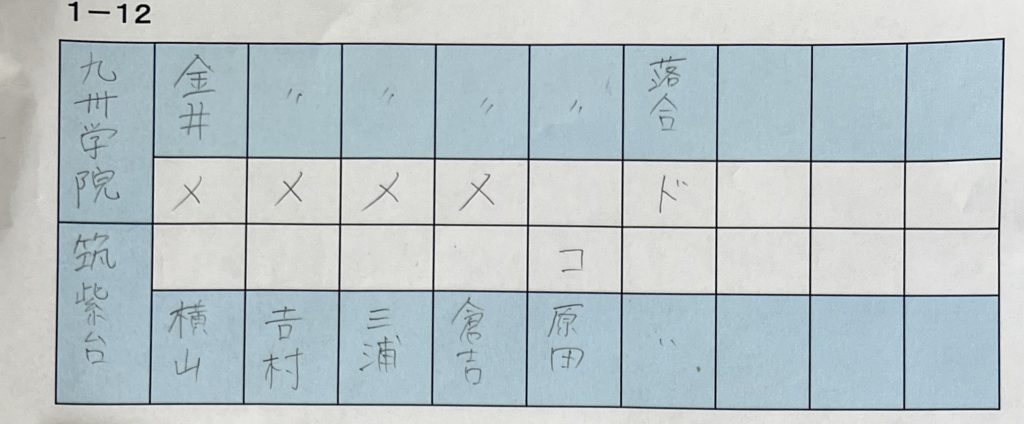 1-12
九卅学院 金井 〃 〃 〃 〃 落合
メ メ メ メ ド
コ
筑紫台 横山 吉村 三浦 倉吉 原田 〃